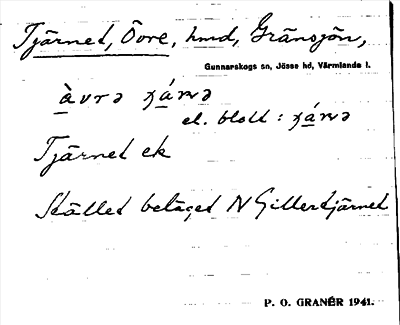 Tjärnet, Övre, hmd, Gränsjön,
Gunnarskogs sn, Jösse hd, Värmlands l.
el. blott :
Tjärnet ek
Stället beläget N Gillertjärnet
P. O. GRANÉR 1941.